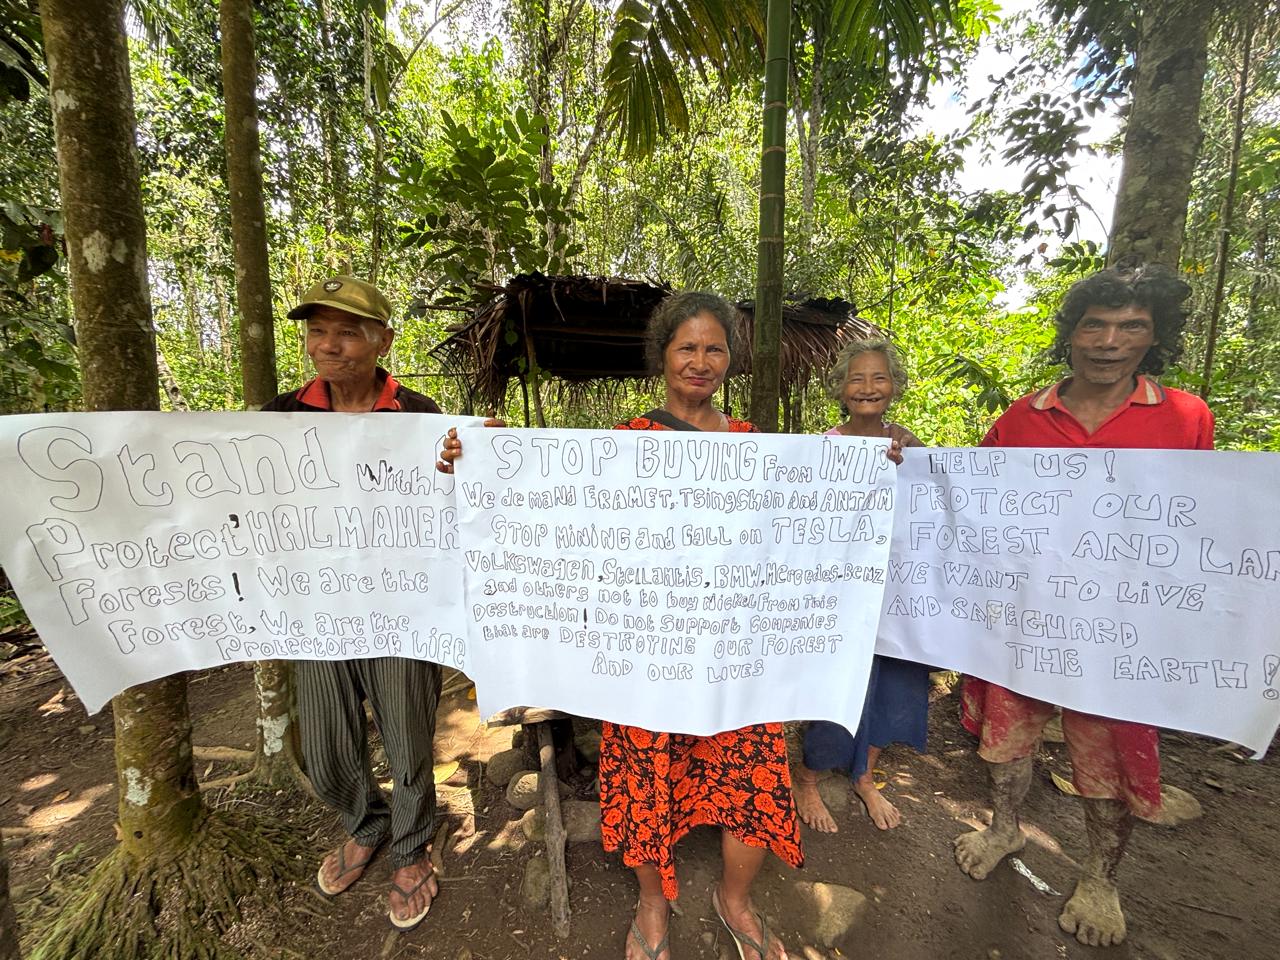 Stand with
Protect HALMAHER
Forests! We are the
Forest, We are the
Protectors OF Life
STOP BUYING From IWIP
We demand ERAMET, Tsingshan And ANTAM
STOP Mining and Call on TESLA,
Volkswagen, Stellantis, BMW, Mercedes-Benz
and others not to buy Nickel From This
Destruction! Do not Support Companies
that are DESTROYING OUR FOREST
AND OUR LIVES
HELP US!
PROTECT OUR
FOREST AND LAN
WE WANT TO LIVE
AND SAFEGUARD
THE EARTH!